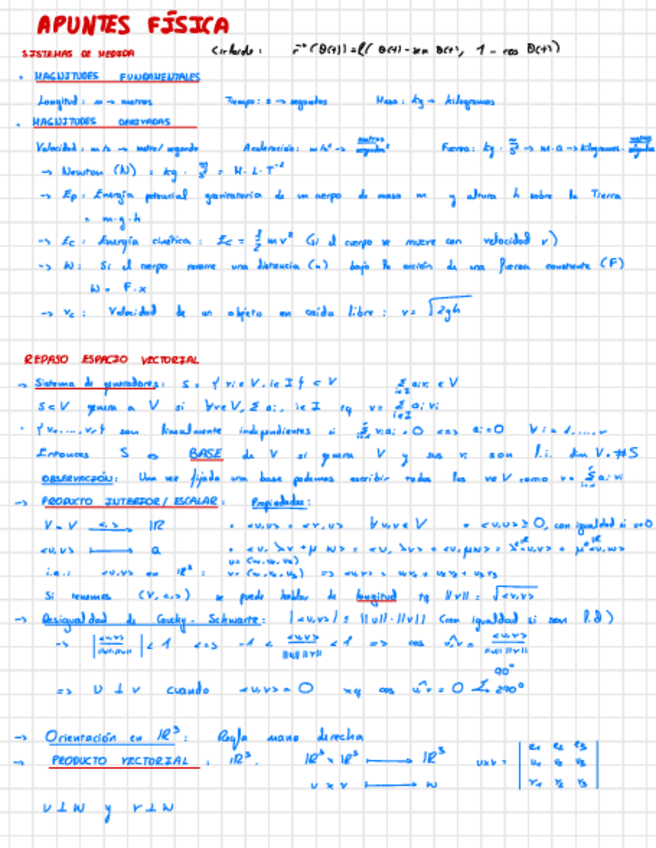 APUNTES FÍSICA
SISTEMAS DE MEDIDA
Cicloide: r(θ(t)) = R( θ(t) - sen θ(t), 1 - cos θ(t))
• MAGNITUDES FUNDAMENTALES
Longitud: m → metros Tiempo: s → segundos Masa: kg → kilogramos
• MAGNITUDES DERIVADAS
Velocidad: m/s → metro/segundo Aceleración: m/s² → metros/segundo² Fuerza: kg · m/s² → m·a → kilogramos · metros/segundo
→ Newton (N) = kg · m/s² = M·L·T⁻²
→ Ep: Energía potencial gravitatoria de un cuerpo de masa m y altura h sobre la Tierra
= m·g·h
→ Ec: Energía cinética: Ec = ½ m v² (si el cuerpo se mueve con velocidad v)
→ W: Si el cuerpo recorre una distancia (x) bajo la acción de una fuerza constante (F)
W = F·x
→ Vc: Velocidad de un objeto en caída libre: v = √2gh
REPASO ESPACIO VECTORIAL
→ Sistema de generadores: S = { vi ∈ V, i ∈ I } ⊂ V Σ ai vi ∈ V
S ⊂ V genera a V si ∀v ∈ V, ∃ ai, i ∈ I tq v = Σ ai vi
• { v1, ..., vr } son linealmente independientes si Σ vi ai = 0 <=> ai = 0 ∀i = 1, ..., r
Entonces S es BASE de V si genera V y sus vi son l.i. dim V = #S
OBSERVACIÓN: Una vez fijada una base podemos escribir todos los v ∈ V como v = Σ ai vi
→ PRODUCTO INTERIOR/ESCALAR: Propiedades:
V × V <,> → ℝ • <u,v> = <v,u> ∀u,v ∈ V • <u,u> ≥ 0, con igualdad si u=0
<u,v> ↦ a • <u, λv + μw> = <u, λv> + <u, μw> = λ<u,v> + μ<u,w>
i.e.: <u,v> en ℝ³: u = (u1, u2, u3) v = (v1, v2, v3) => <u,v> = u1v1 + u2v2 + u3v3
Si tenemos (V, <,>) se puede hablar de longitud tq ||v|| = √<v,v>
→ Desigualdad de Cauchy-Schwartz: |<u,v>| ≤ ||u||·||v|| (con igualdad si son l.d)
→ |<u,v>/||u||||v||| < 1 <=> -1 < <u,v>/||u||||v|| < 1 => cos u^v = <u,v>/||u||||v||
=> U ⊥ V cuando <u,v> = 0 xq cos u^v = 0 90° 270°
→ Orientación en ℝ³: Regla mano derecha
→ PRODUCTO VECTORIAL: ℝ³. ℝ³ × ℝ³ → ℝ³ u×v = | e1 e2 e3
u × v ↦ w u1 u2 u3
v1 v2 v3 |
U ⊥ W y V ⊥ W